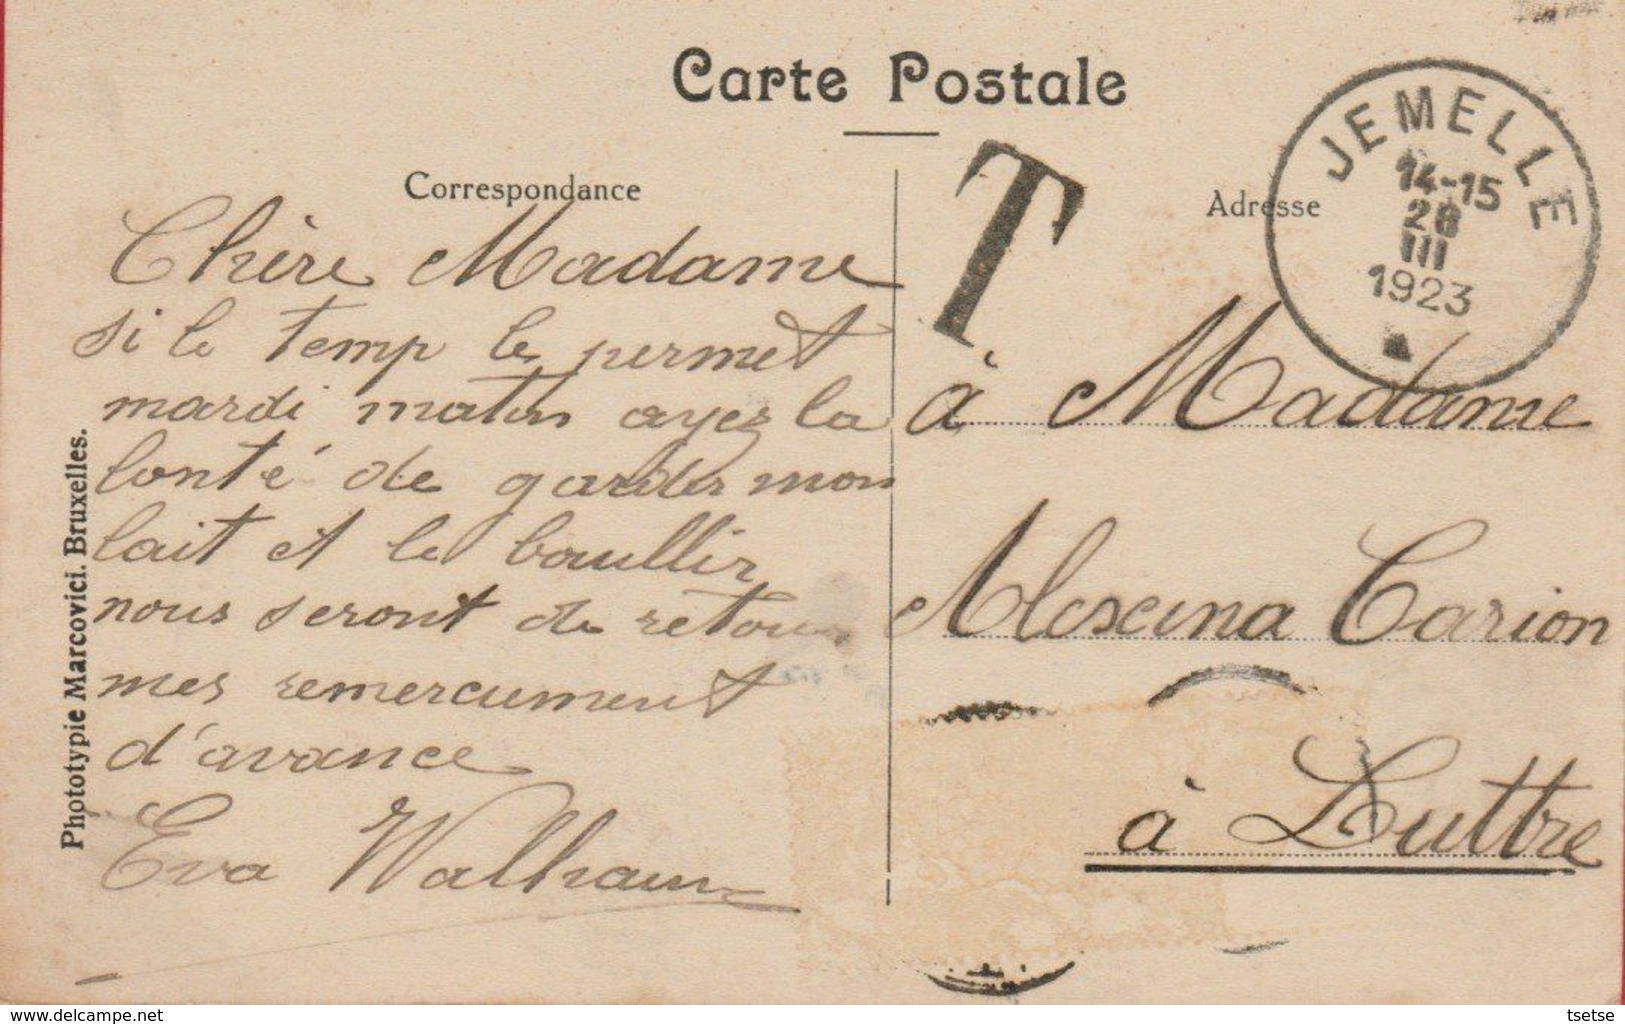 Carte Postale
Correspondance
Adresse
T
JEMELLE
14-15
28
III
1923
Chère Madame
si le temp le permet
mardi matin ayez la
bonté de garder mon
lait et le bouillir
nous seront de retour
mes remerciement
d'avance
Eva Walhain
à Madame
Alexina Carion
à Luttre
Phototypie Marcovici. Bruxelles.
delcampe.net
tsetse